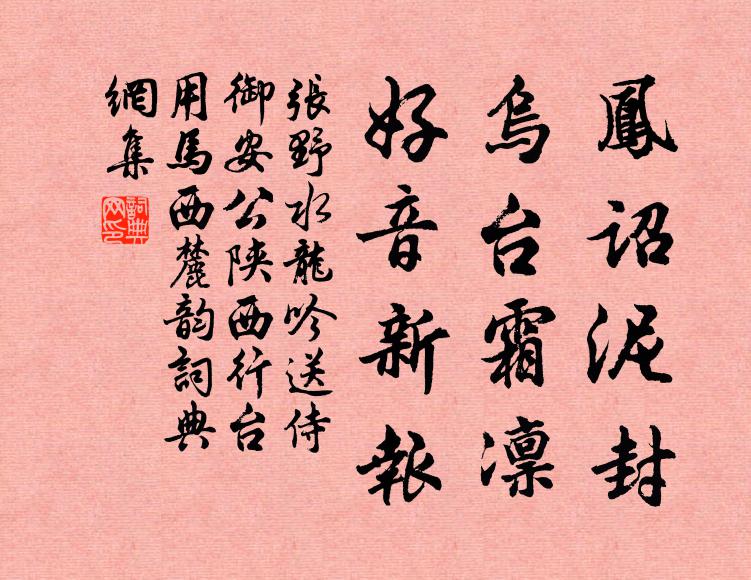 鳳詔泥封
烏台霜凛
好音新報
張野水龍吟送侍
御安公陝西行台
用馬西麓韵詞典
網集
詞典
网印